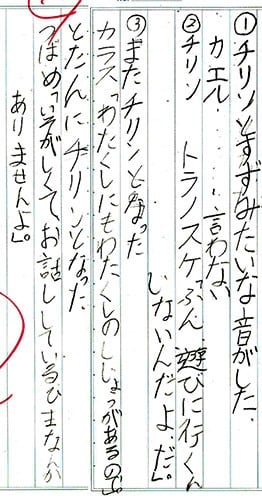 ①チリンとすずみたいな音がした
カエル……言わない
②チリン トラノスケ「ふん 遊びに行くん
じないんだよ、だ」。
③またチリンとなった
カラス「わたくしにもわたくしのじじょうがあるの」
とたんにチリンとなった
つばめ「いそがしくて、お話ししているひまなんか
ありませんよ」。